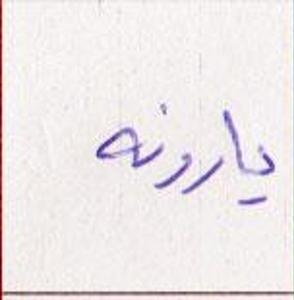 يارونه